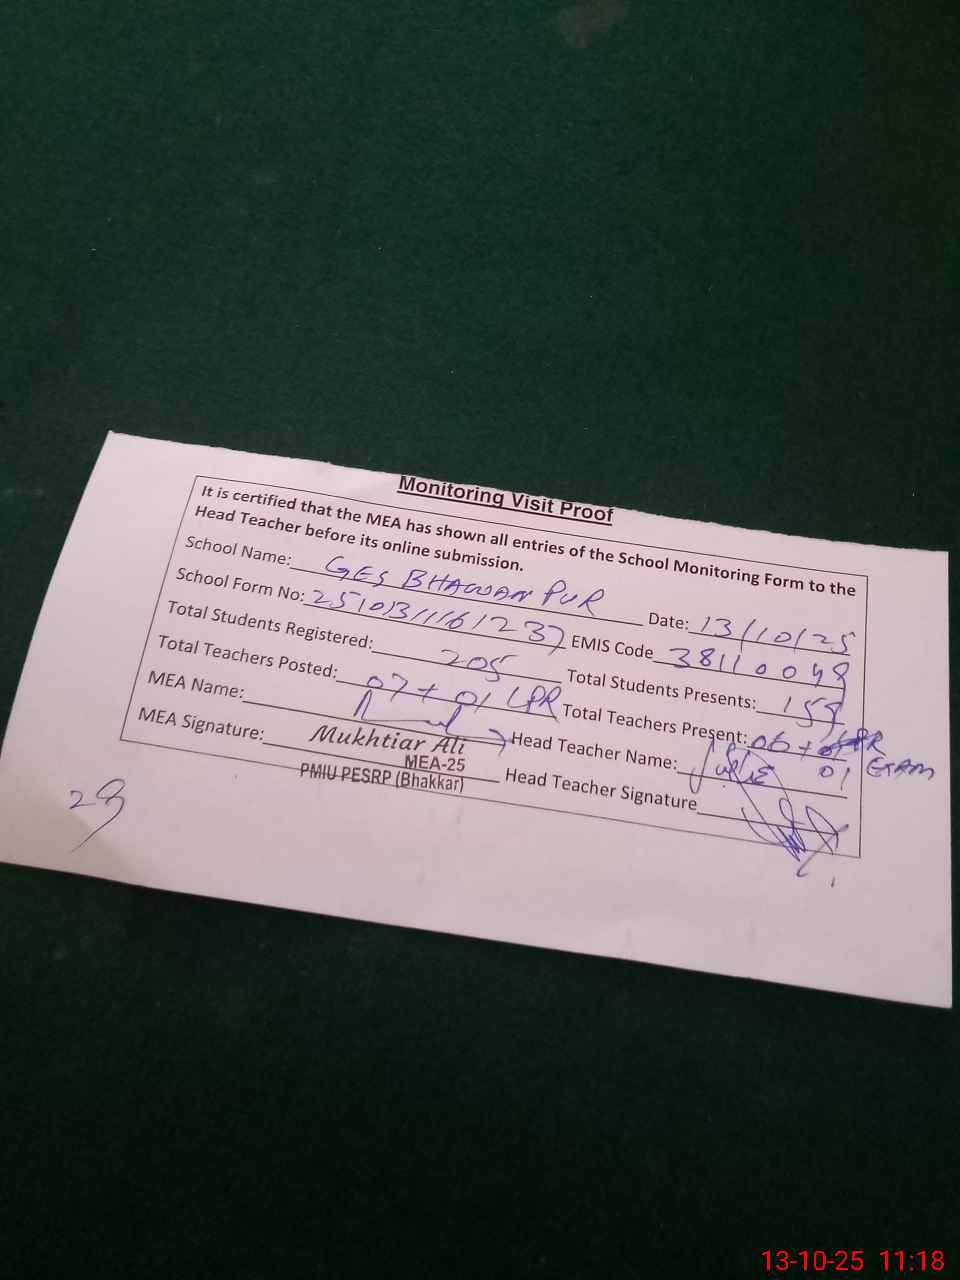 Monitoring Visit Proof
It is certified that the MEA has shown all entries of the School Monitoring Form to the
Head Teacher before its online submission.
School Name: GES BHAWAN PUR Date: 13/10/25
School Form No: EMIS Code 38110048
Total Students Registered: 205 Total Students Presents: 159
Total Teachers Posted: 07 + 01 LPR Total Teachers Present: 06 +
MEA Name: Head Teacher Name: 01 EXAM
MEA Signature: Mukhtiar Ali Head Teacher Signature
MEA-25
PMIU PESRP (Bhakkar)
13-10-25 11:18